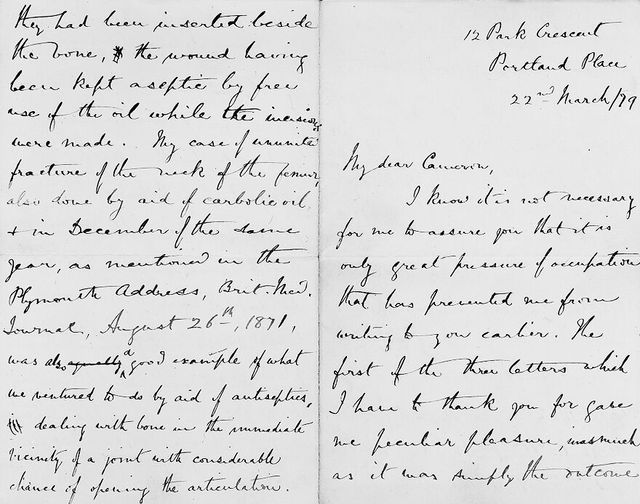 12 Park Crescent
Portland Place
22nd March/79
My dear Cameron,
I know it is not necessary
for me to assure you that it is
only great pressure of occupation
that has prevented me from
writing to you earlier. The
first of the three letters which
I have to thank you for gave
me peculiar pleasure, inasmuch
as it was simply the outcome
they had been inserted beside
the bone, the wound having
been kept aseptic by free
use of the oil while the incisions
were made. My case of ununited
fracture of the neck of the femur,
also done by aid of carbolic oil
+ in December of the same
year, as mentioned in the
Plymouth Address, Brit. Med.
Journal, August 26th, 1871,
was also a good example of what
we ventured to do by aid of antiseptics,
in dealing with bone in the immediate
vicinity of a joint with considerable
chance of opening the articulation.